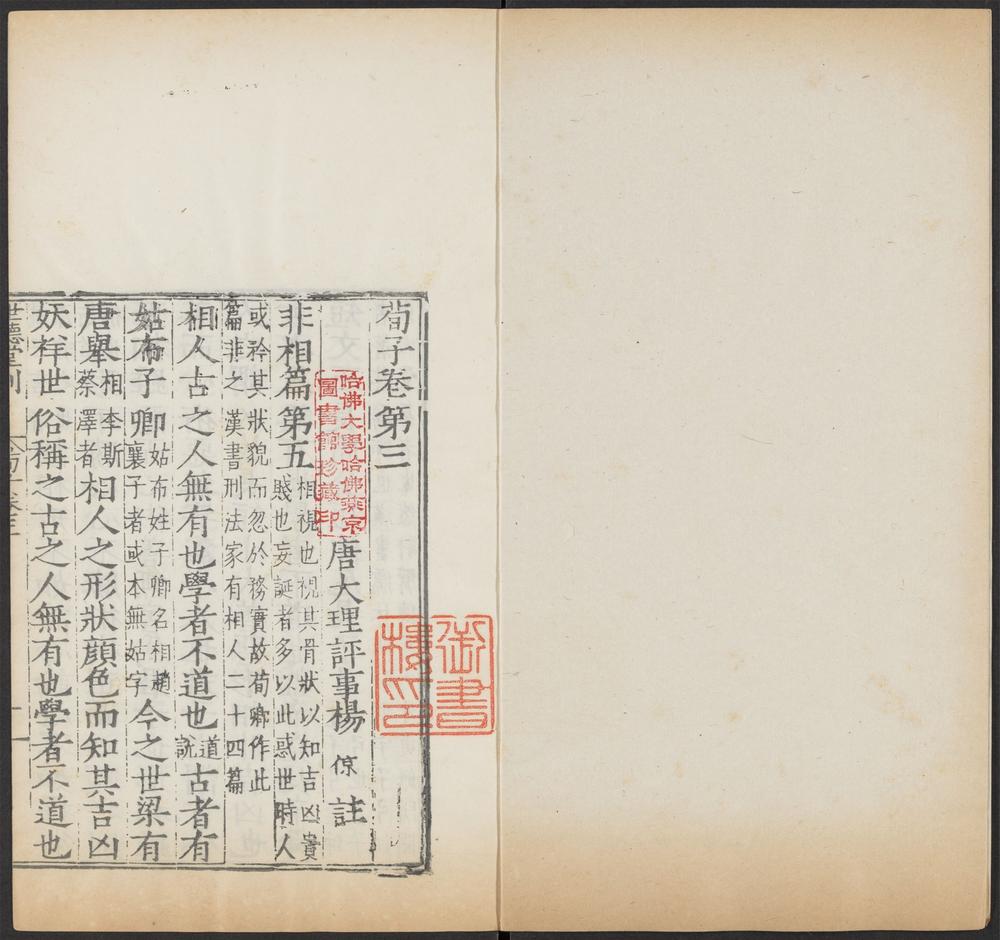 荀子卷第三
唐大理評事楊倞註
非相篇第五相視也視其骨狀以知吉凶貴賤也妄誕者多以此惑世時人
或矜其狀貌而忽於務實故荀卿作此篇非之漢書刑法家有相人二十四篇
相人古之人無有也學者不道也道說古者有
姑布子卿姑布姓子卿名相趙襄子者或本無姑字今之世梁有
唐舉相李斯蔡澤者相人之形狀顔色而知其吉凶
妖祥世俗稱之古之人無有也學者不道也
世德堂刊
哈佛大學哈佛燕京
圖書館珍藏印
御書
樓印